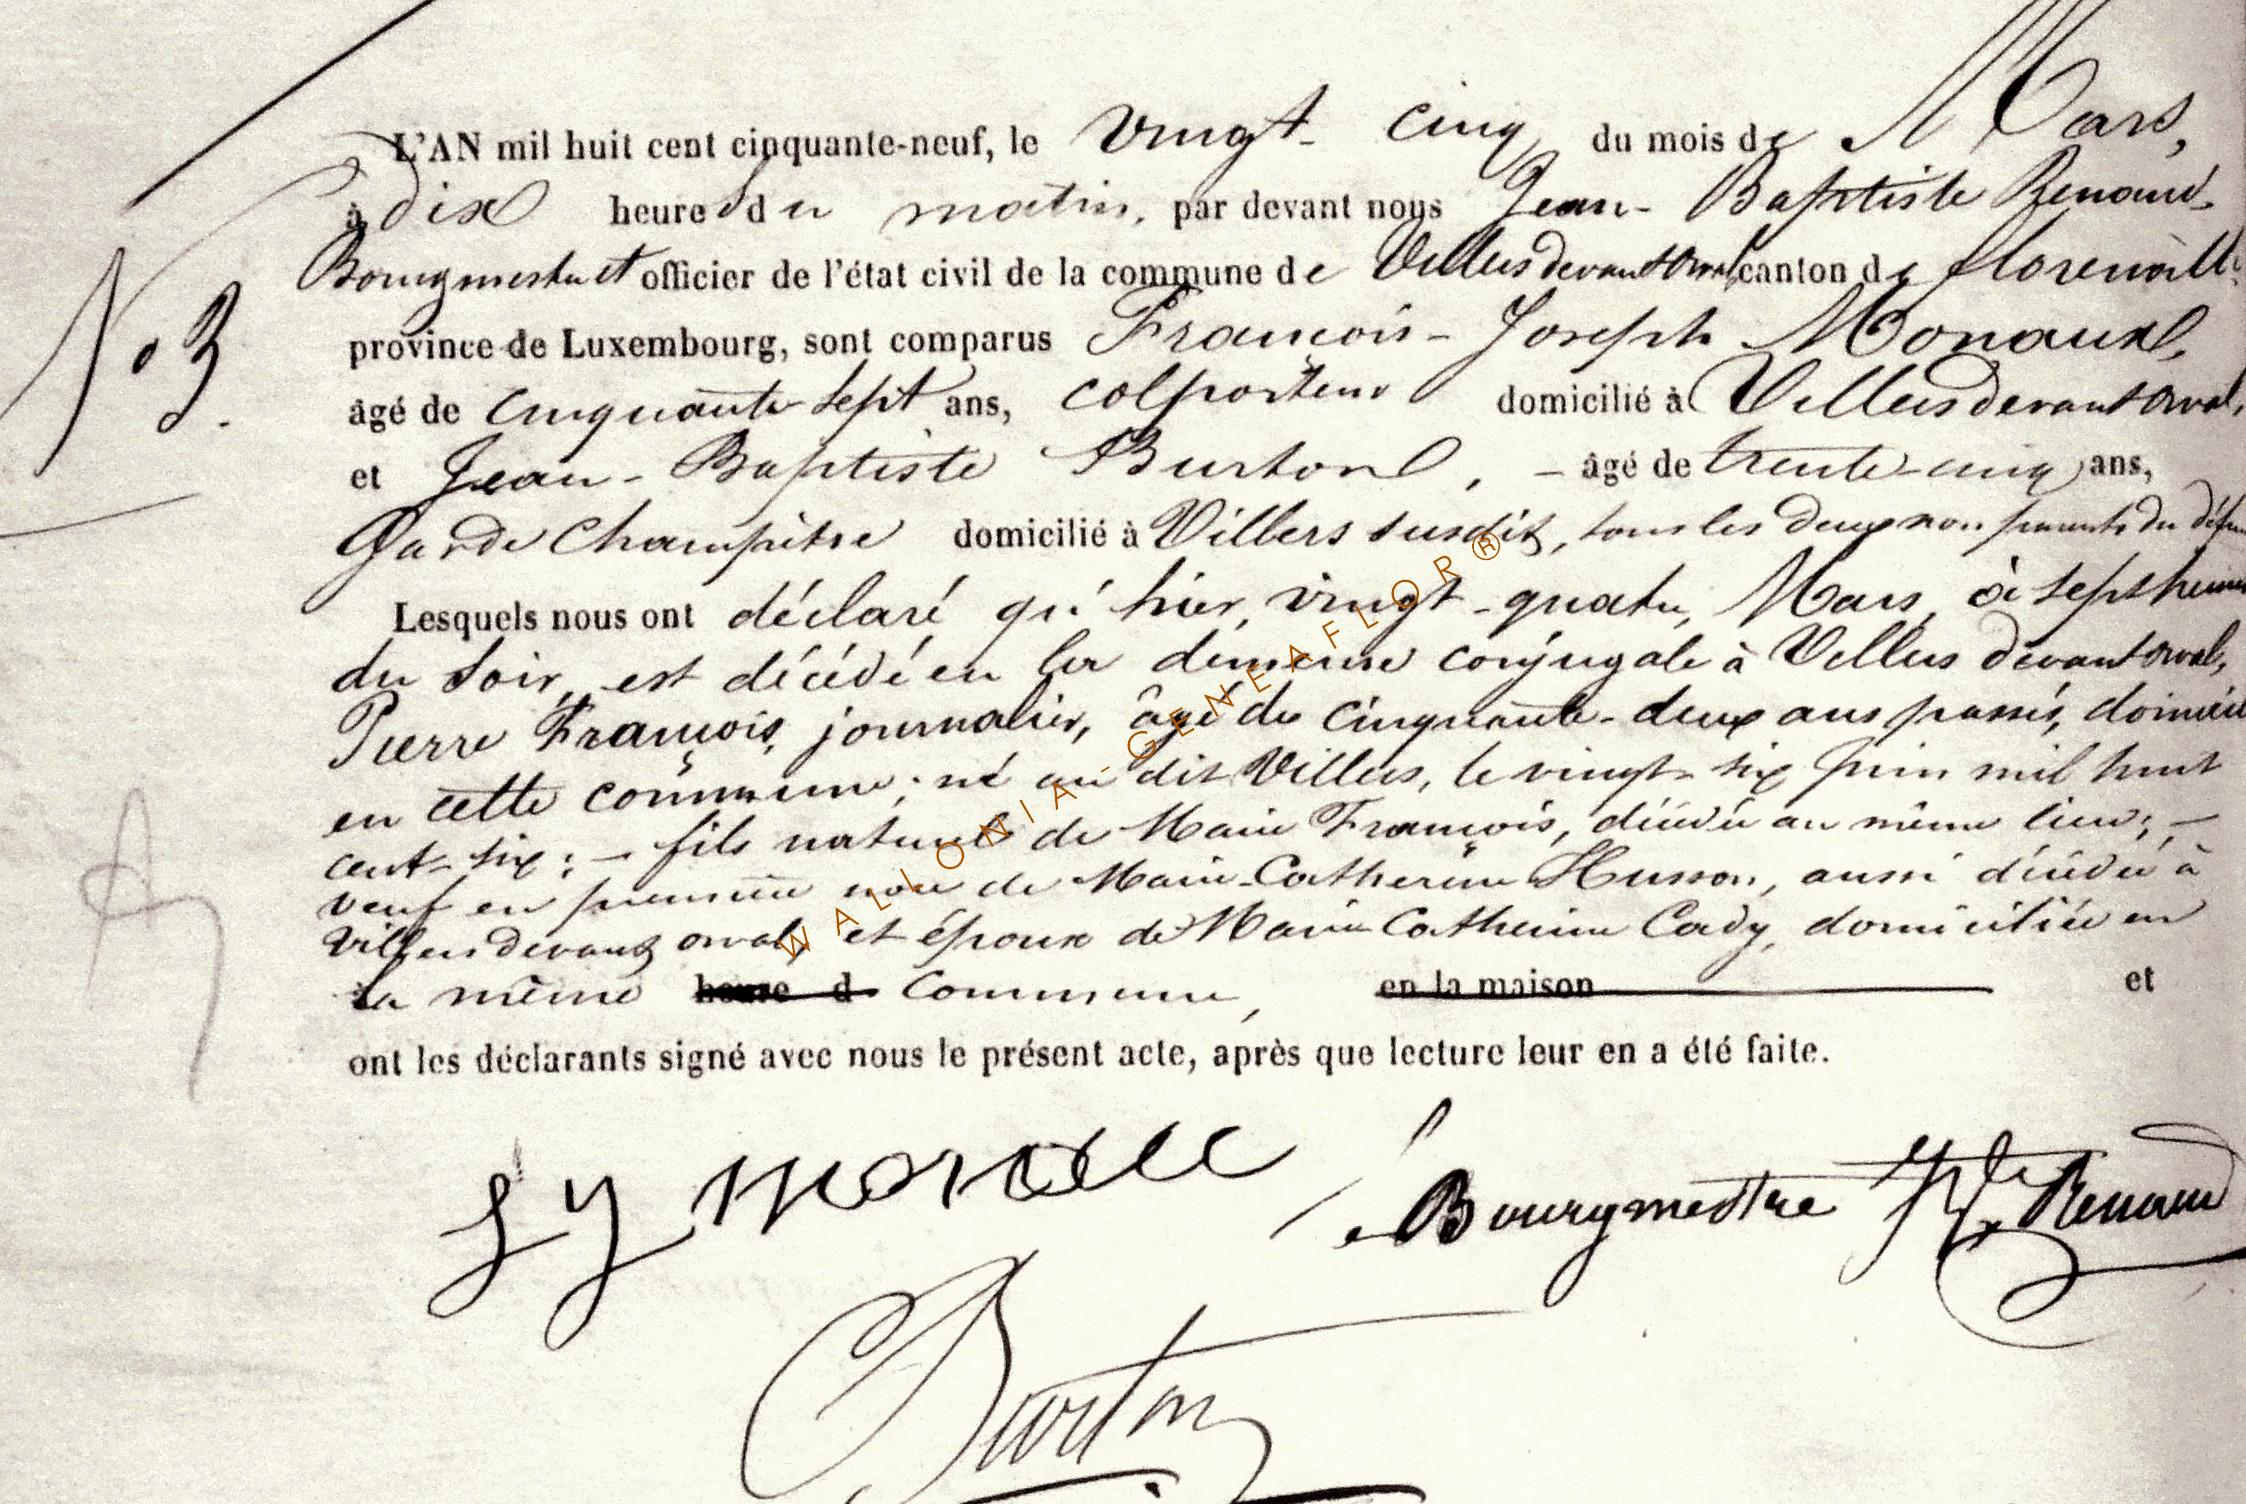 L'AN mil huit cent cinquante-neuf, le vingt-cinq du mois de Mars,
à dix heures du matin, par devant nous Jean-Baptiste Renaud
Bourgmestre et officier de l'état civil de la commune de Villers devant orval canton de florenville
province de Luxembourg, sont comparus François-Joseph Monaux,
N° 3.
âgé de cinquante sept ans, colporteur domicilié à Villers devant orval,
et Jean-Baptiste Burton, - âgé de trente-cinq ans,
Garde Champêtre domicilié à Villers susdit, tous les deux non parents du
Lesquels nous ont déclaré qu'hier, vingt-quatre Mars, à sept heures
du soir, est décédé en la demeure conjugale à Villers devant orval,
Pierre François, journalier, âgé de cinquante-deux ans passés, domicilié
en cette commune; né au dit Villers, le vingt-six juin mil huit
cent-six; - fils naturel de Marie François, décédée au même lieu; -
veuf en première de Marie-Catherine Husson, aussi décédée à
Villers devant orval, et époux de Marie Catherine Cady, domiciliée en
la même heure d commune, en la maison et
ont les déclarants signé avec nous le présent acte, après que lecture leur en a été faite.
Le Bourgmestre Renaud
Burton
WALLONIA-GENEAFLOR®